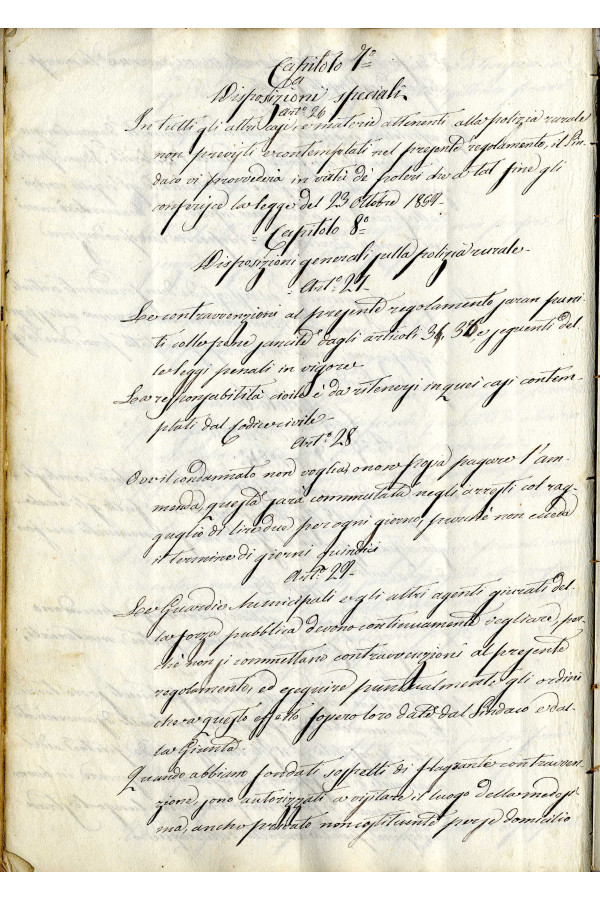 Capitolo 7°
Disposizioni speciali.
Art.° 26
In tutti gli altri casi, e materie attinenti alla polizia rurale
non previsti e contemplati nel presente regolamento, il Sin-
daco vi provvederà in virtù de' poteri che a tal fine gli
conferisce la legge del 23 Ottobre 1859.
Capitolo 8°
Disposizioni generali sulla polizia rurale.
Art.° 27.
Le contravvenzioni al presente regolamento saran puni-
ti colle pene sancite dagli articoli 35, 36, e seguenti del
le leggi penali in vigore
La responsabilità civile è da ritenersi in quei casi contem-
plati dal Codice civile.
Art.° 28
Ove il condannato non voglia, o non possa pagare l'am-
menda, questa sarà commutata negli arresti col rag-
guaglio di lire due per ogni giorno, purchè non ecceda
il termine di giorni quindici
Art.° 29.
Le Guardie Municipali e gli altri agenti giurati del-
la forza pubblica devono continuamente vegliare, per-
chè non si commettano contravvenzioni al presente
regolamento, ed eseguire puntualmente gli ordini
che a questo effetto fossero loro dati dal Sindaco e dal-
la Giunta.
Quando abbiano fondati sospetti di flagrante contravven-
zione, sono autorizzati a visitare il luogo della medesi-
ma, anche privato non costituente per se domicilio